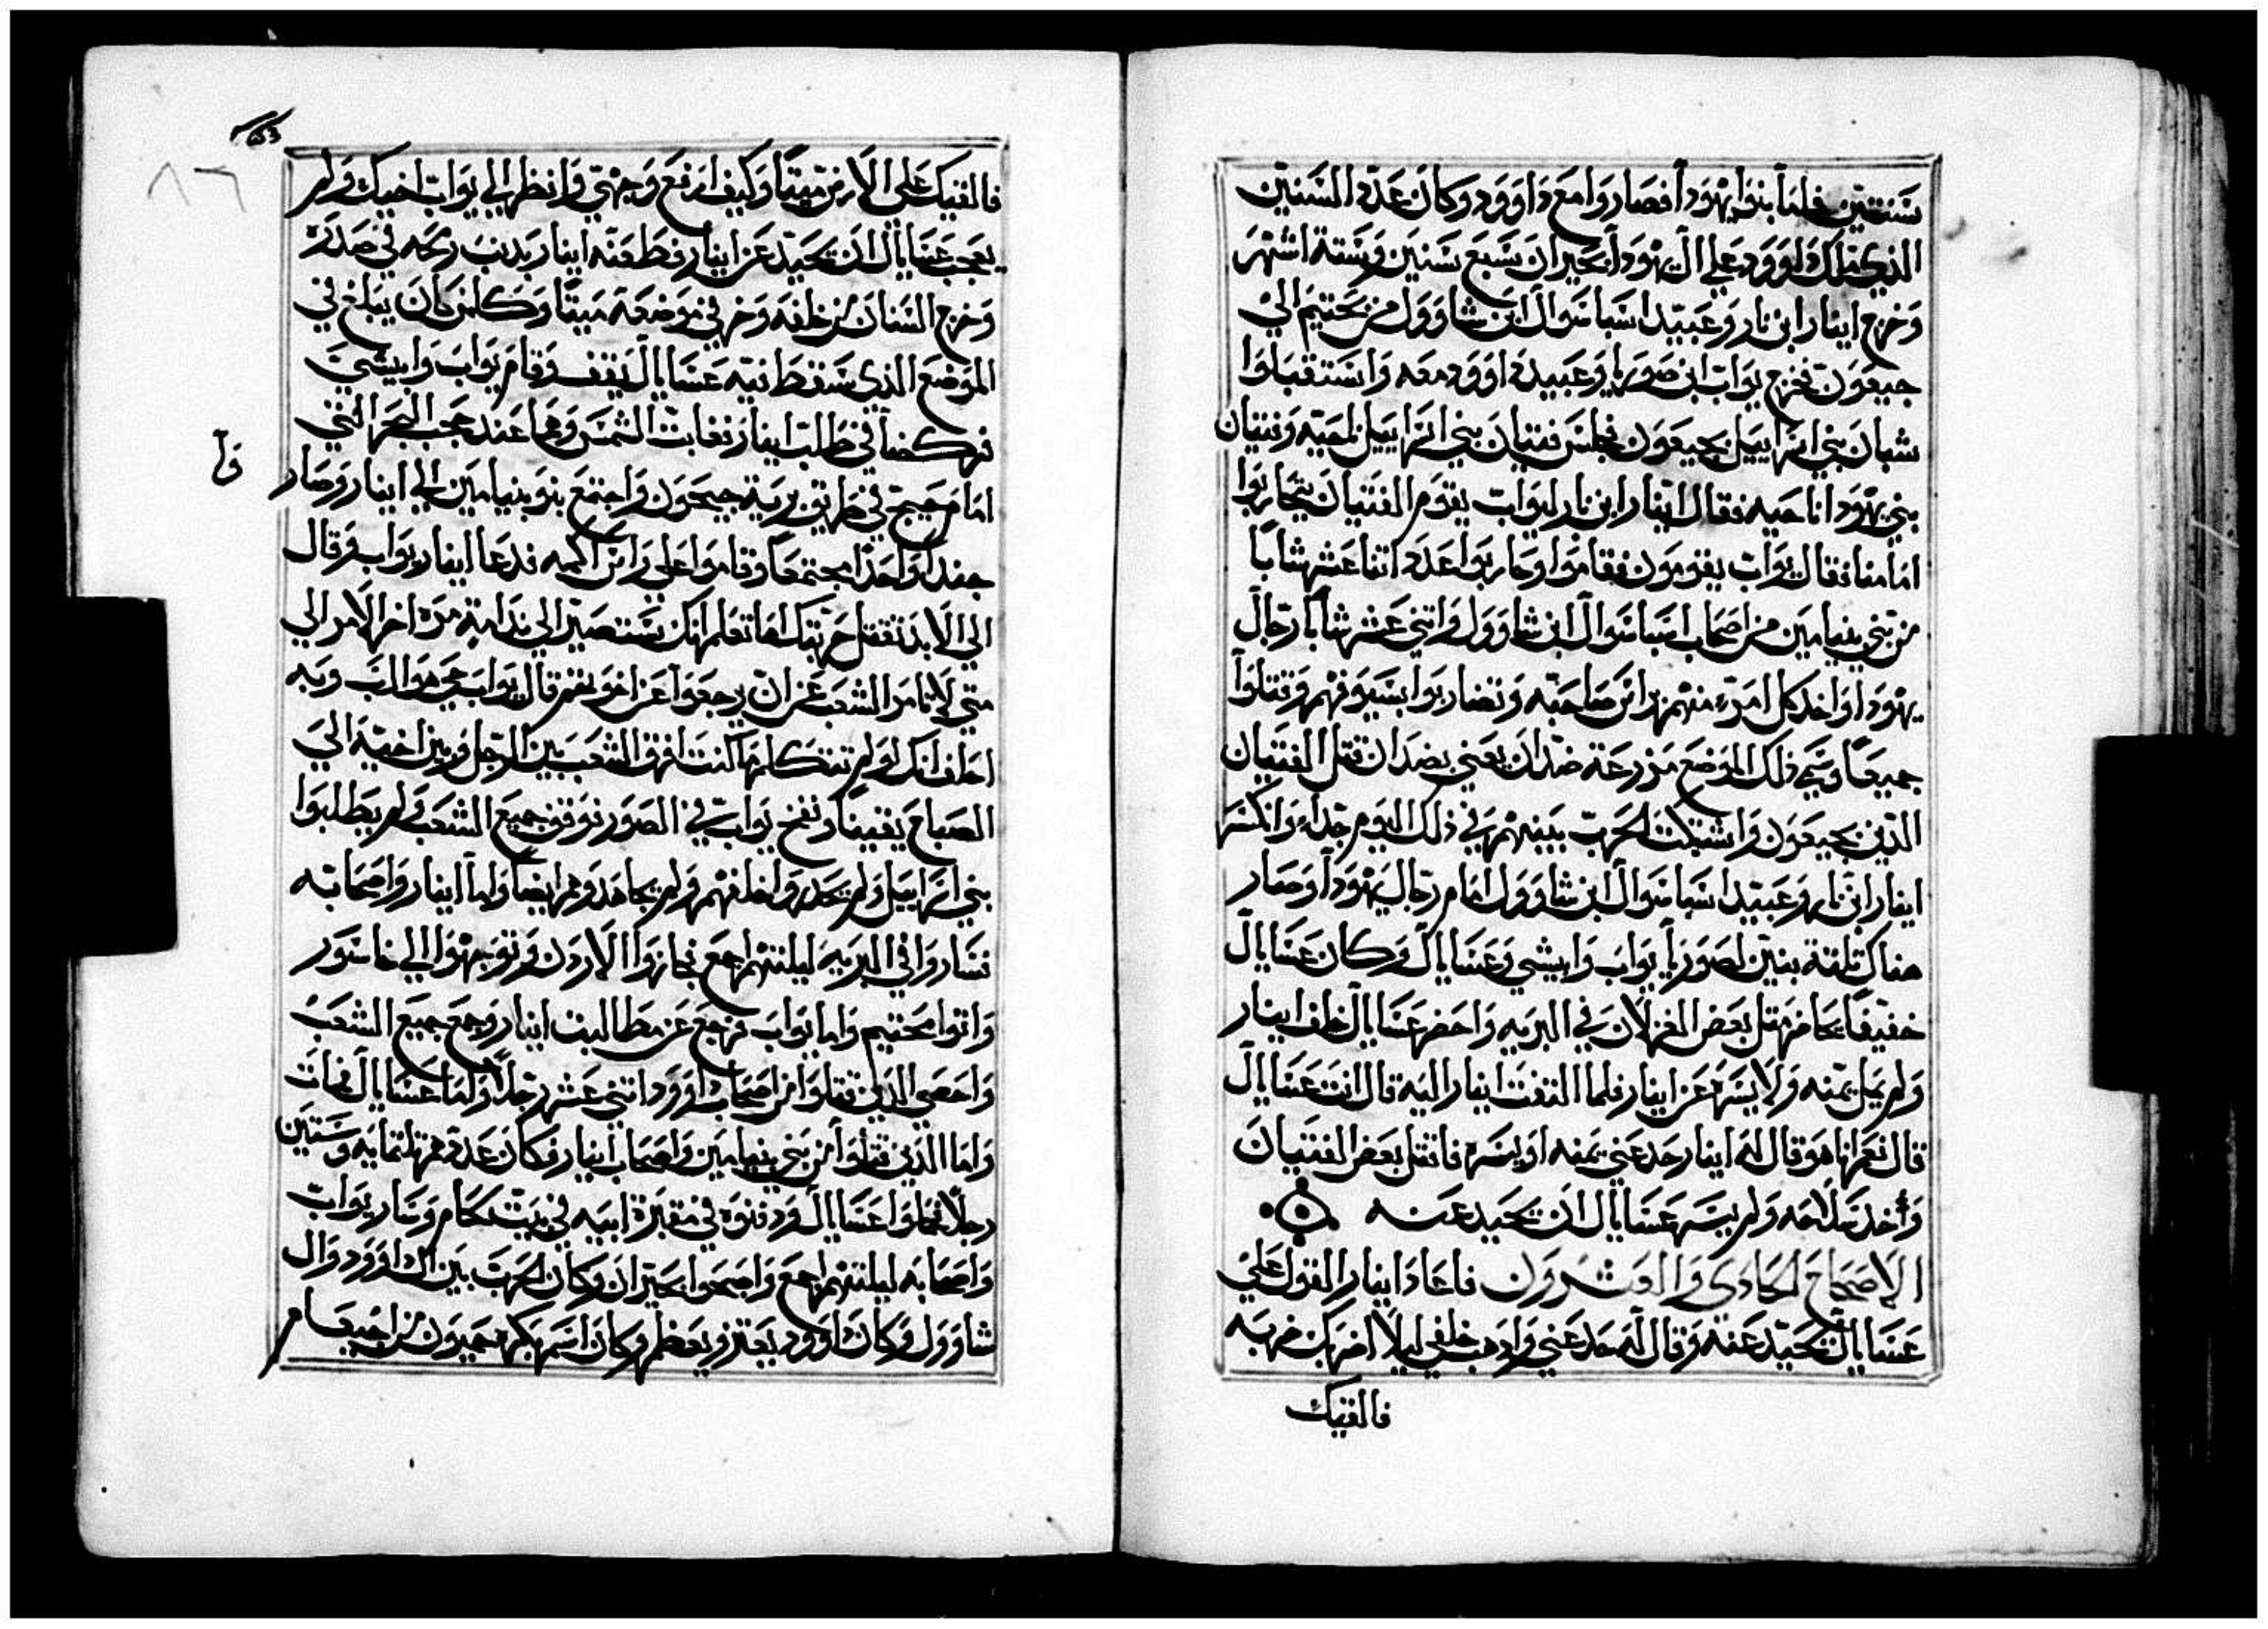 سنتين فاما بنوا يهودا فصاروا مع داوود وكان عدد السنين
الذي ملك داوود علي ال يهودا بحبران سبع سنين وستة اشهر
وخرج ابنار ابن نار وعبيد اسباسوال ابن شاوول من محنيم الي
جبعون فخرج يواب ابن صوريا وعبيد داوود معه واستقبلوا
شبان بني اسراييل بجبعون فجلس فتيان بني اسراييل ناحيه وفتيان
بني يهودا ناحيه فقال ابنار ابن نار ليواب يقوم الفتيان يتحاربوا
امامنا فقال يواب يقومون فقاموا وحاربوا عدد اتنا عشر شابا
من بني بنيامين من اصحاب اسباسوال ابن شاوول واتني عشر شابا رجال
يهودا واخد كل امرء منهم براس صاحبه وتضاربوا بسيوفهم وقتلوا
جميعا وسمي ذلك الموضع مزرعة ضدان يعني بضدان قتل الفتيان
الذين بجبعون واشتبكت الحرب بينهم في ذلك اليوم جدا وانكسر
ابنار ابن نار وعبيد اسباسوال ابن شاوول امام رجال يهودا وصار
هناك تلتة بنين لصوريا يواب وابيشي وعسايال وكان عسايال
خفيفا محاضر متل بعض الغزلان في البريه واحضر عسايال خلف ابنار
ولم يمل يمنه ولا يسره عن ابنار فلما التفت ابنار اليه قال انت عسايال
قال نعم انا هو قال له ابنار حد عني يمنه او يسره فاتقل بعض الفتيان
وأخد سلاحه ولم يسر عسايال ان يحيد عنه
الاصحاح الحادي والعشرون فاعاد ابنار القول علي
عسايال يحيد عنه وقال له حد عني وادهب خلفي ليلا اضربك ضربه
فالقيك
فالقيك علي الارض ميتا وكيف ارفع وجهي وانظر الي يواب اخيك ولم
يعجب عسايال ان يحيد عن ابنار فطعنه ابنار بدنب رمحه في صدره
وخرج السنان من خلفه وخر في موضعه ميتا وكلمن كان يبلغ في
الموضع الذي سقط فيه عسايال يقف وقام يواب وابيشي
فركضا في طلب ابنار فغابت الشمس وهما عند عجب البحر التي
امام جيح في طريق برية جيحون واجتمع بنو بنيامين الي ابنار وصار
فآ
جندا واحدا مجتمعا وقاموا علي راس اكمه فدعا ابنار يواب وقال
الي الابد تقتل حربتك اما تعلم انك ستصير الي ندامة مره اخر الامر الي
متي لا تامر الشعب عن ان يرجعوا عن اخوتهم قال يواب حي هو الرب وبه
احلف انك لو لم تتكلمها كنت افرق الشعب بين الرجل وبين اخيه الي
الصباح يقينا ونفخ يواب في الصور فوقف جميع الشعب ولم يطلبوا
بني اسراييل ولم يحدروا خلفهم ولم يجاهدوهم ايضا واما ابنار واصحابه
فساروا في البريه ليلتهم اجمع فجازوا الاردن وتوجهوا الي خاسور
واتوا محنيم واما يواب فرجع عن مطالبت ابنار وجمع جميع الشعب
واحصي الذين قتلوا من اصحاب داوود اتني عشر رجلا واما عسايال فمات
واما الذين قتلوا من بني بنيامين واصحاب ابنار فكان عددهم تلتمايه وستين
رجلا فحملوا عسايال ودفنوه في مقبرة ابيه في بيت لحام وسار يواب
واصحابه ليلتهم اجمع واصبحوا بحبران وكان الحرب بين ال داوود وال
شاوول وكان داوود يعتز ويعظم وكان اسم بكره حميون من احينعام